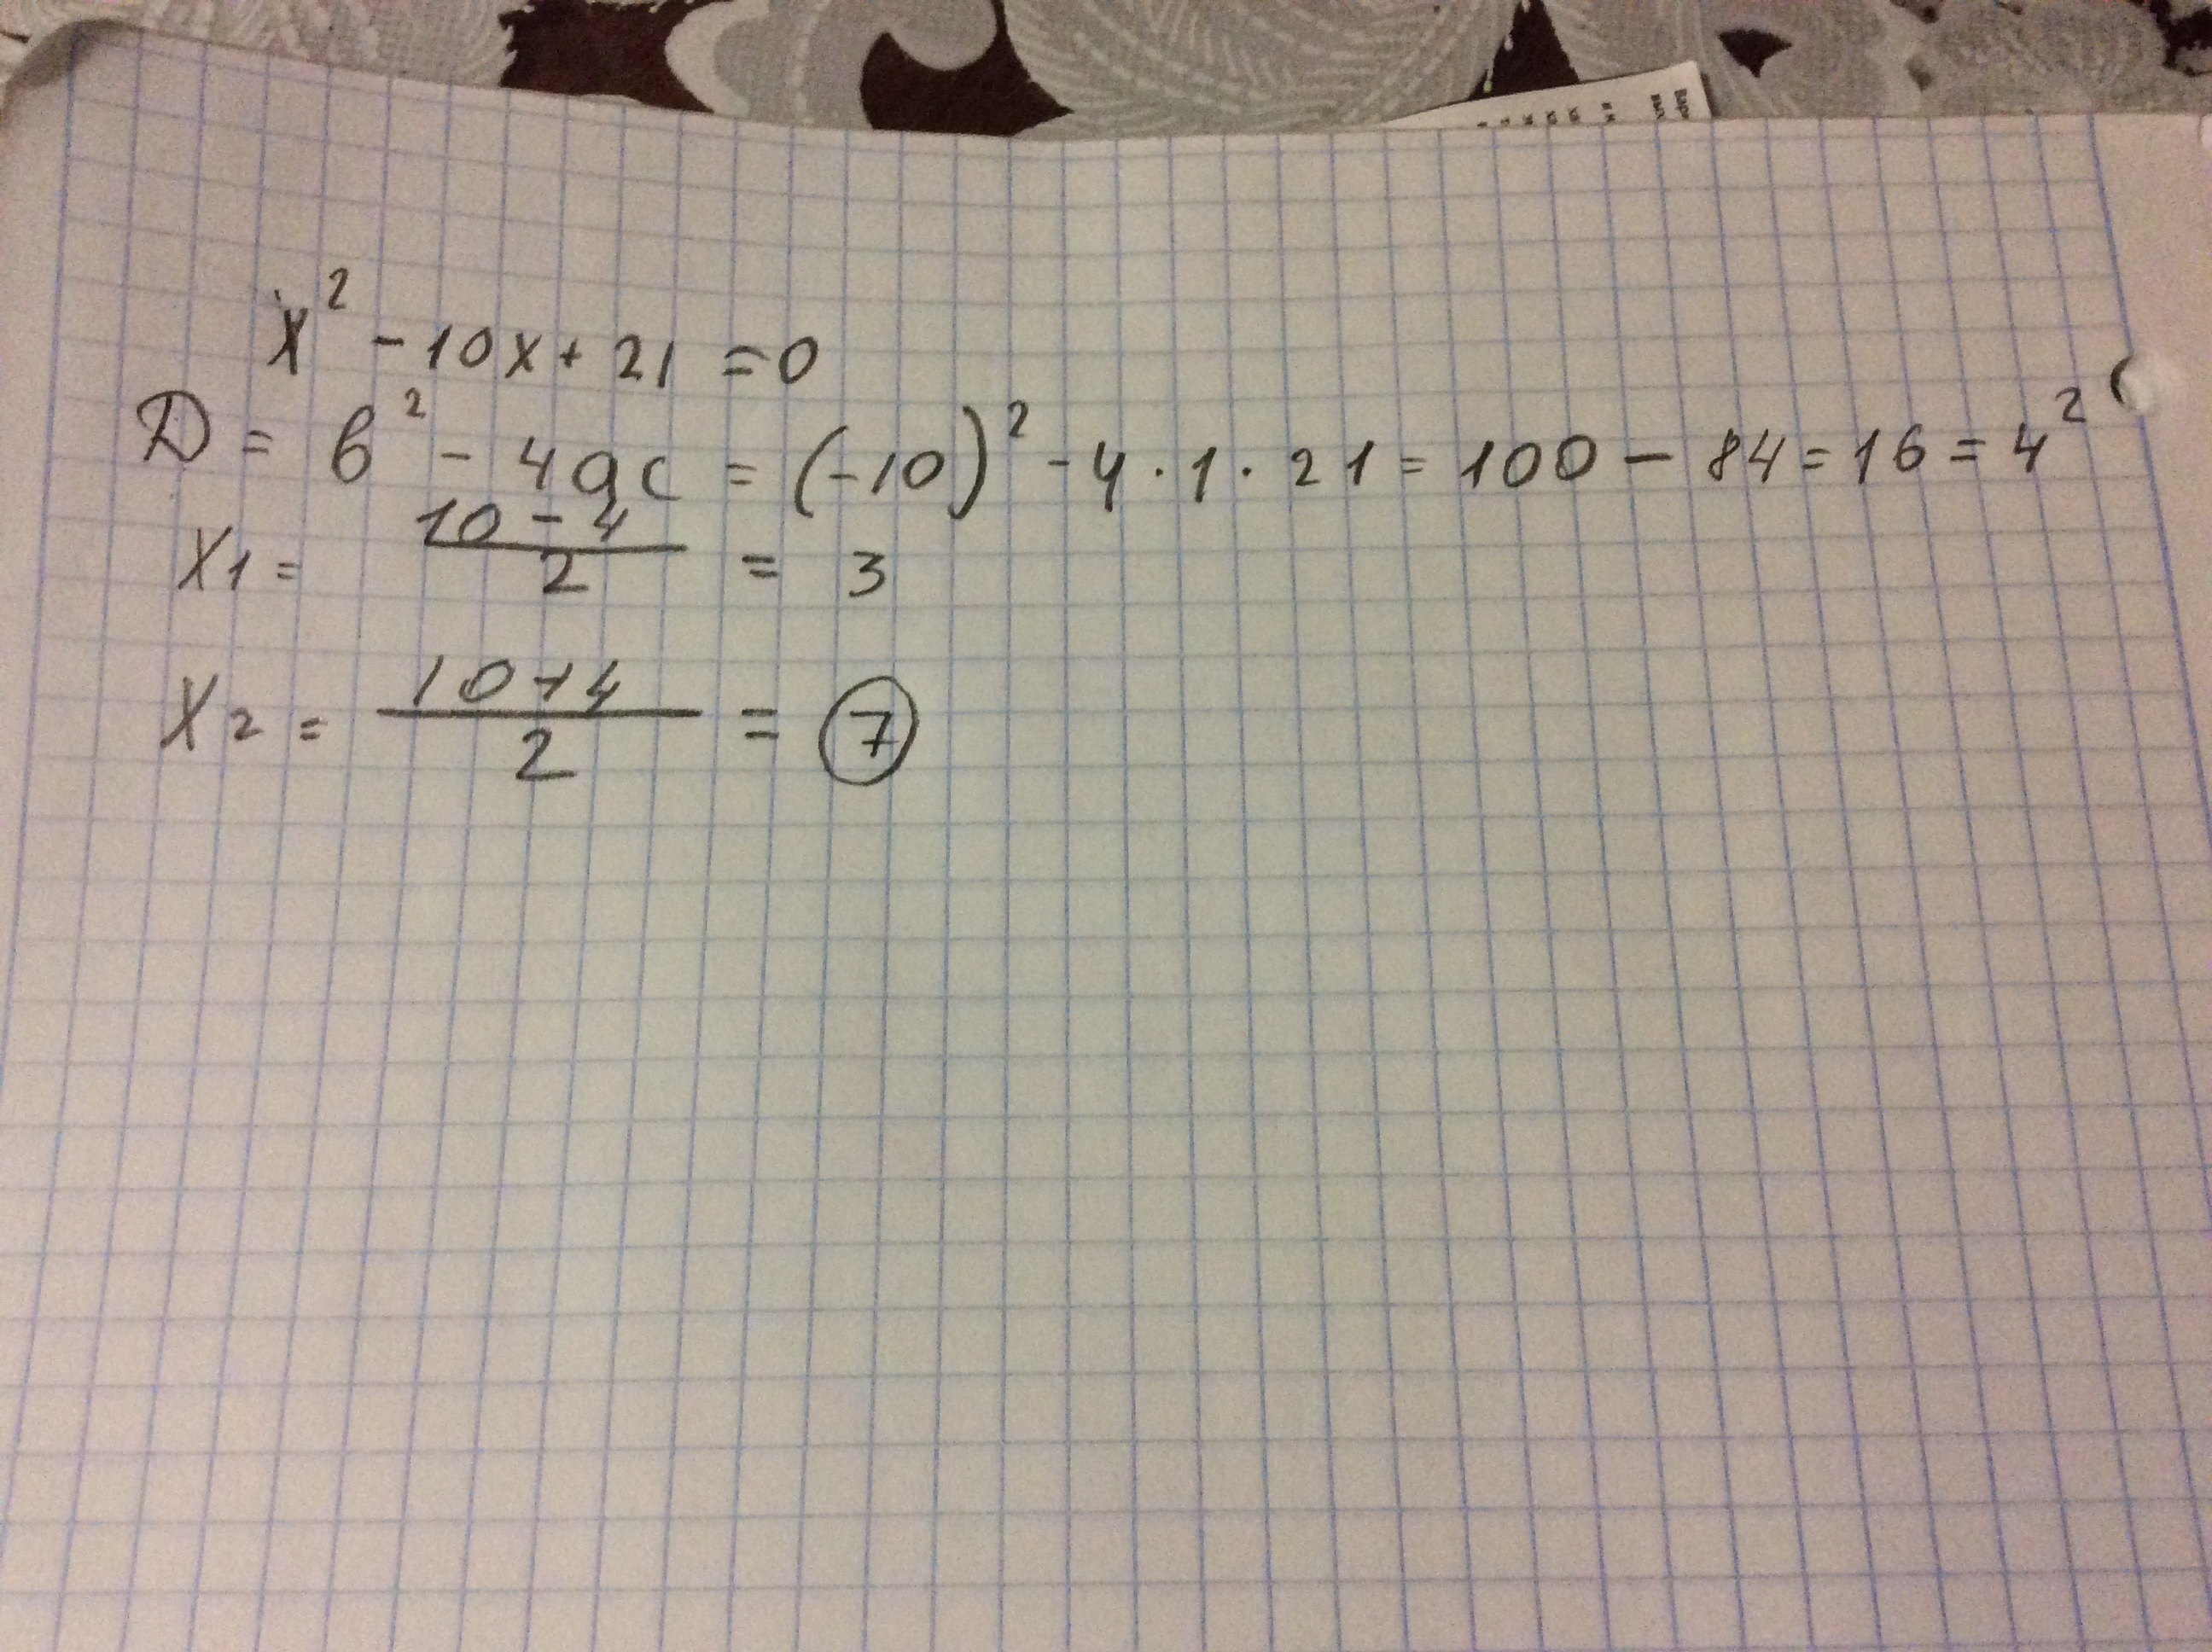 x² - 10x + 21 = 0
D = b² - 4ac = (-10)² - 4 · 1 · 21 = 100 - 84 = 16 = 4²
x1 = (10 - 4)/2 = 3
x2 = (10 + 4)/2 = 7